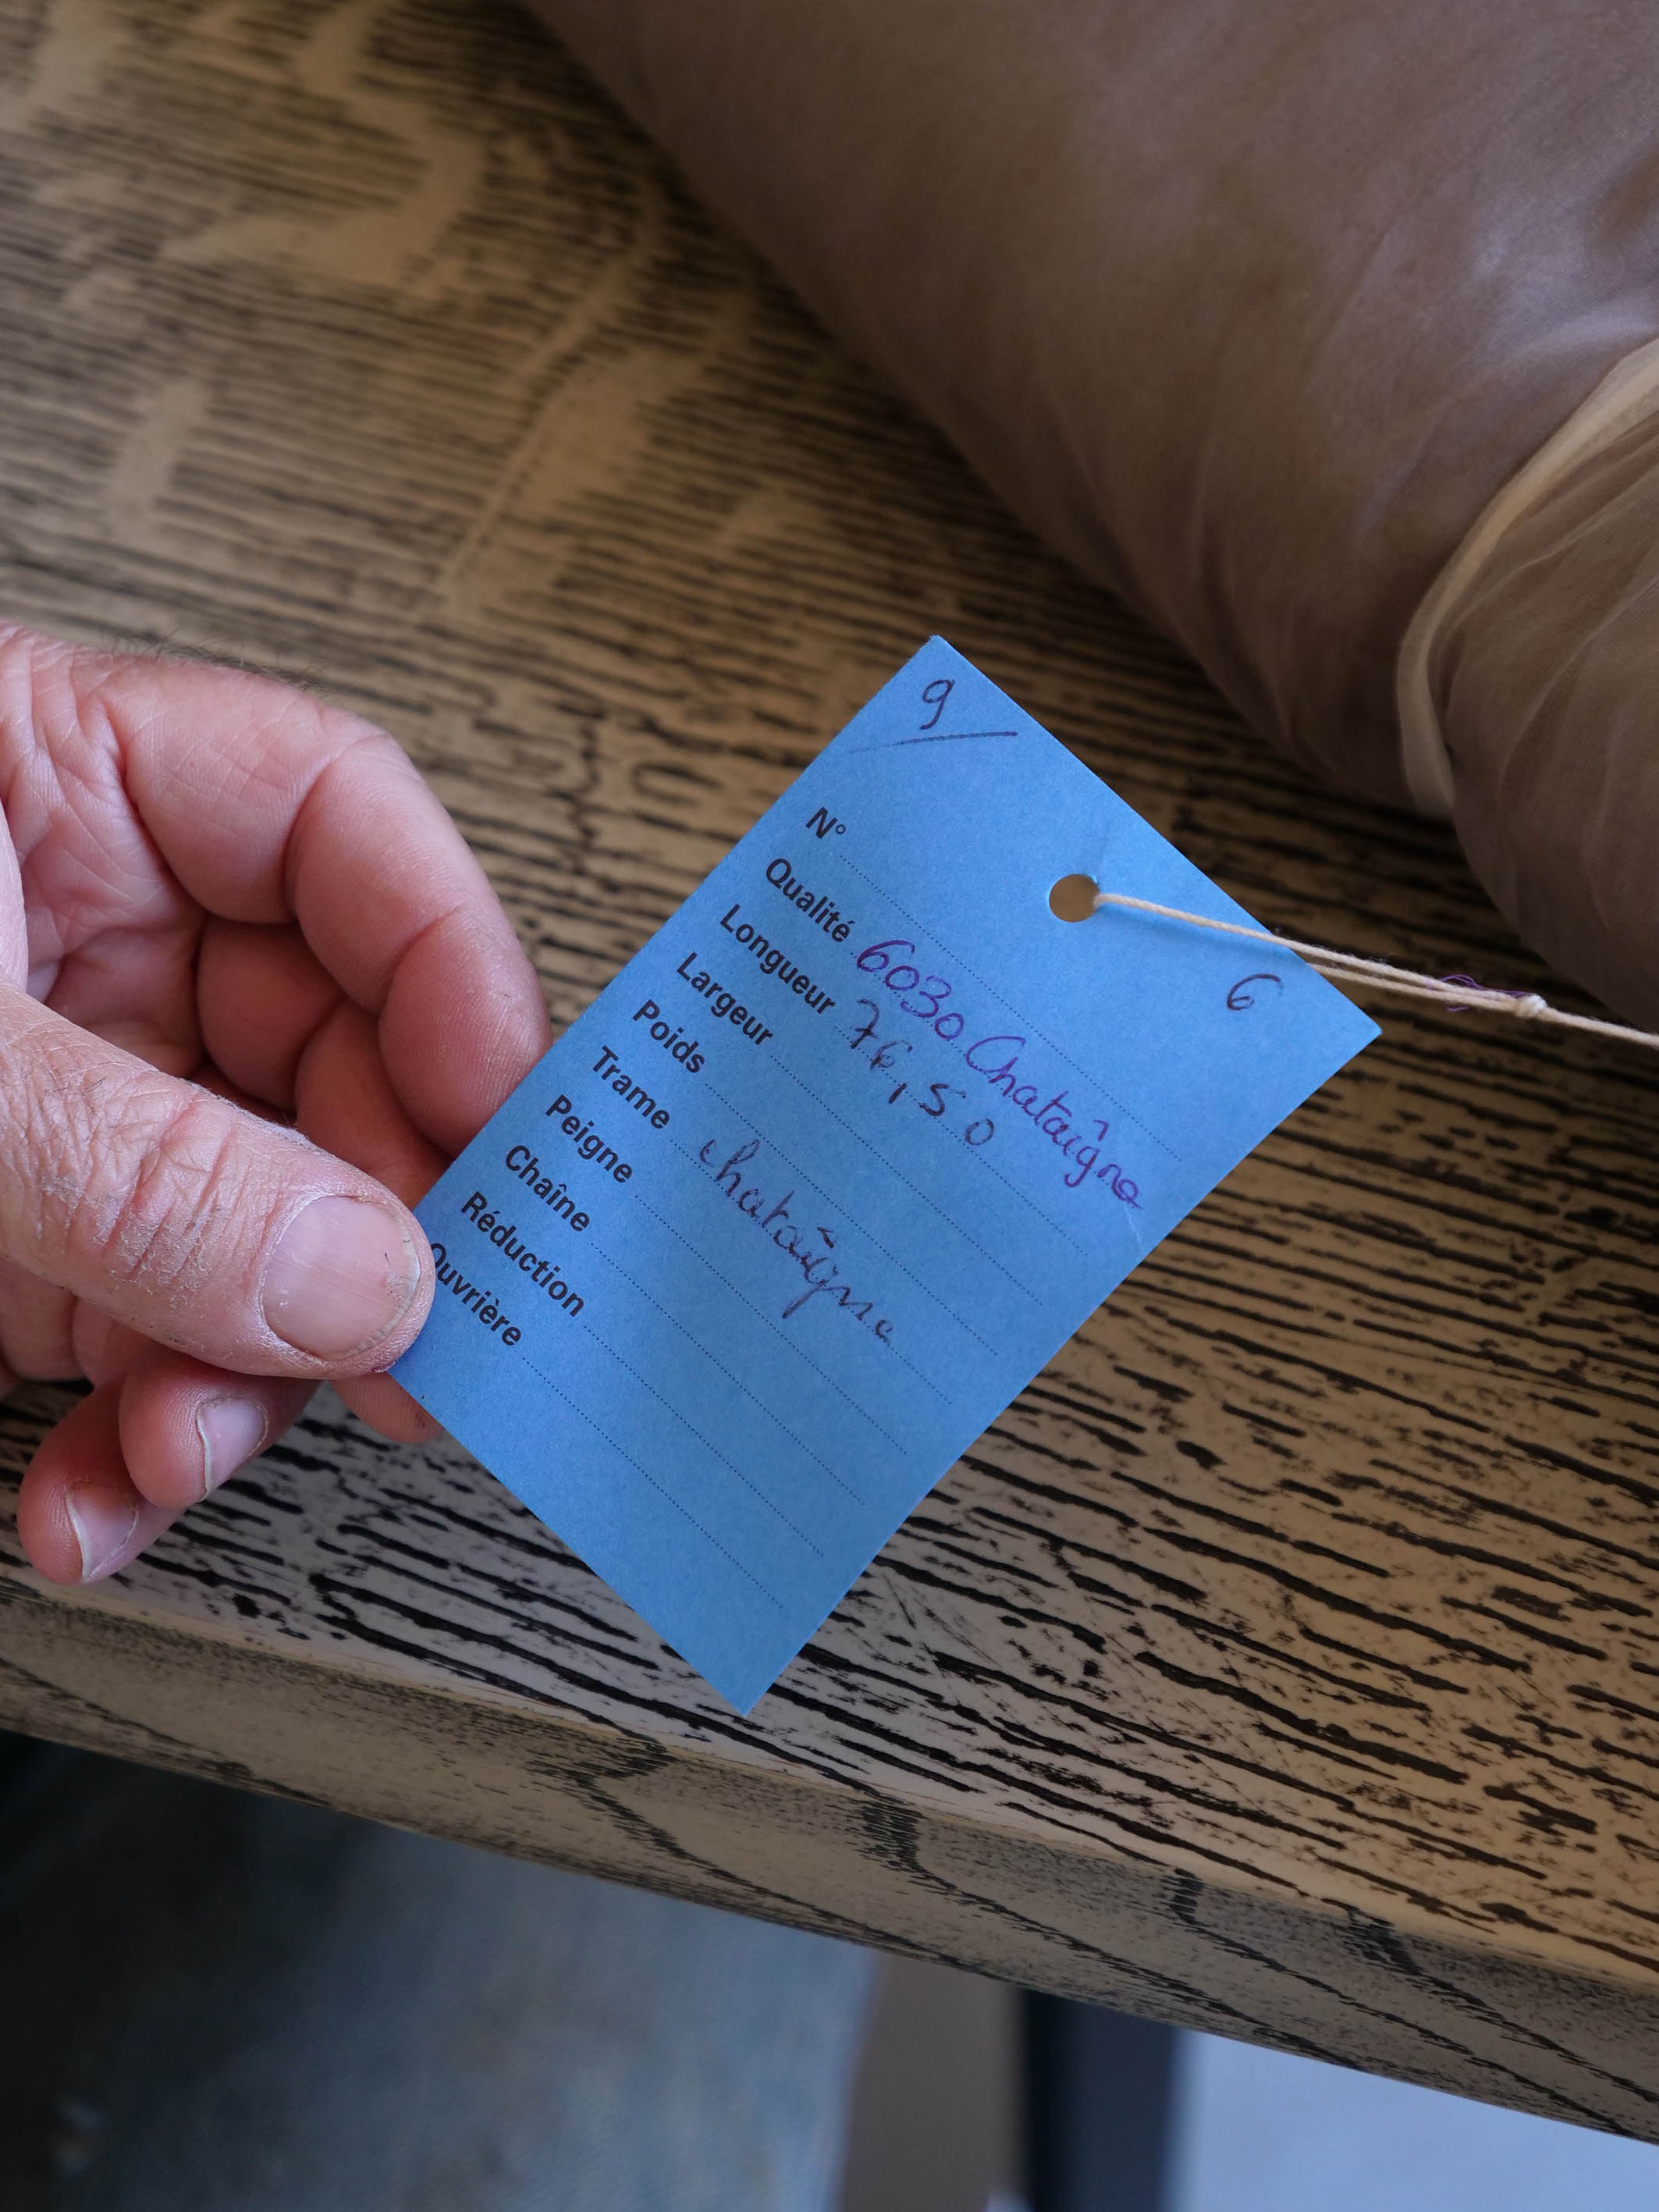 9
6
N°
Qualité 6030 Chataîgne
Longueur 76,50
Largeur
Poids
Trame chataîgne
Peigne
Chaîne
Réduction
Ouvrière